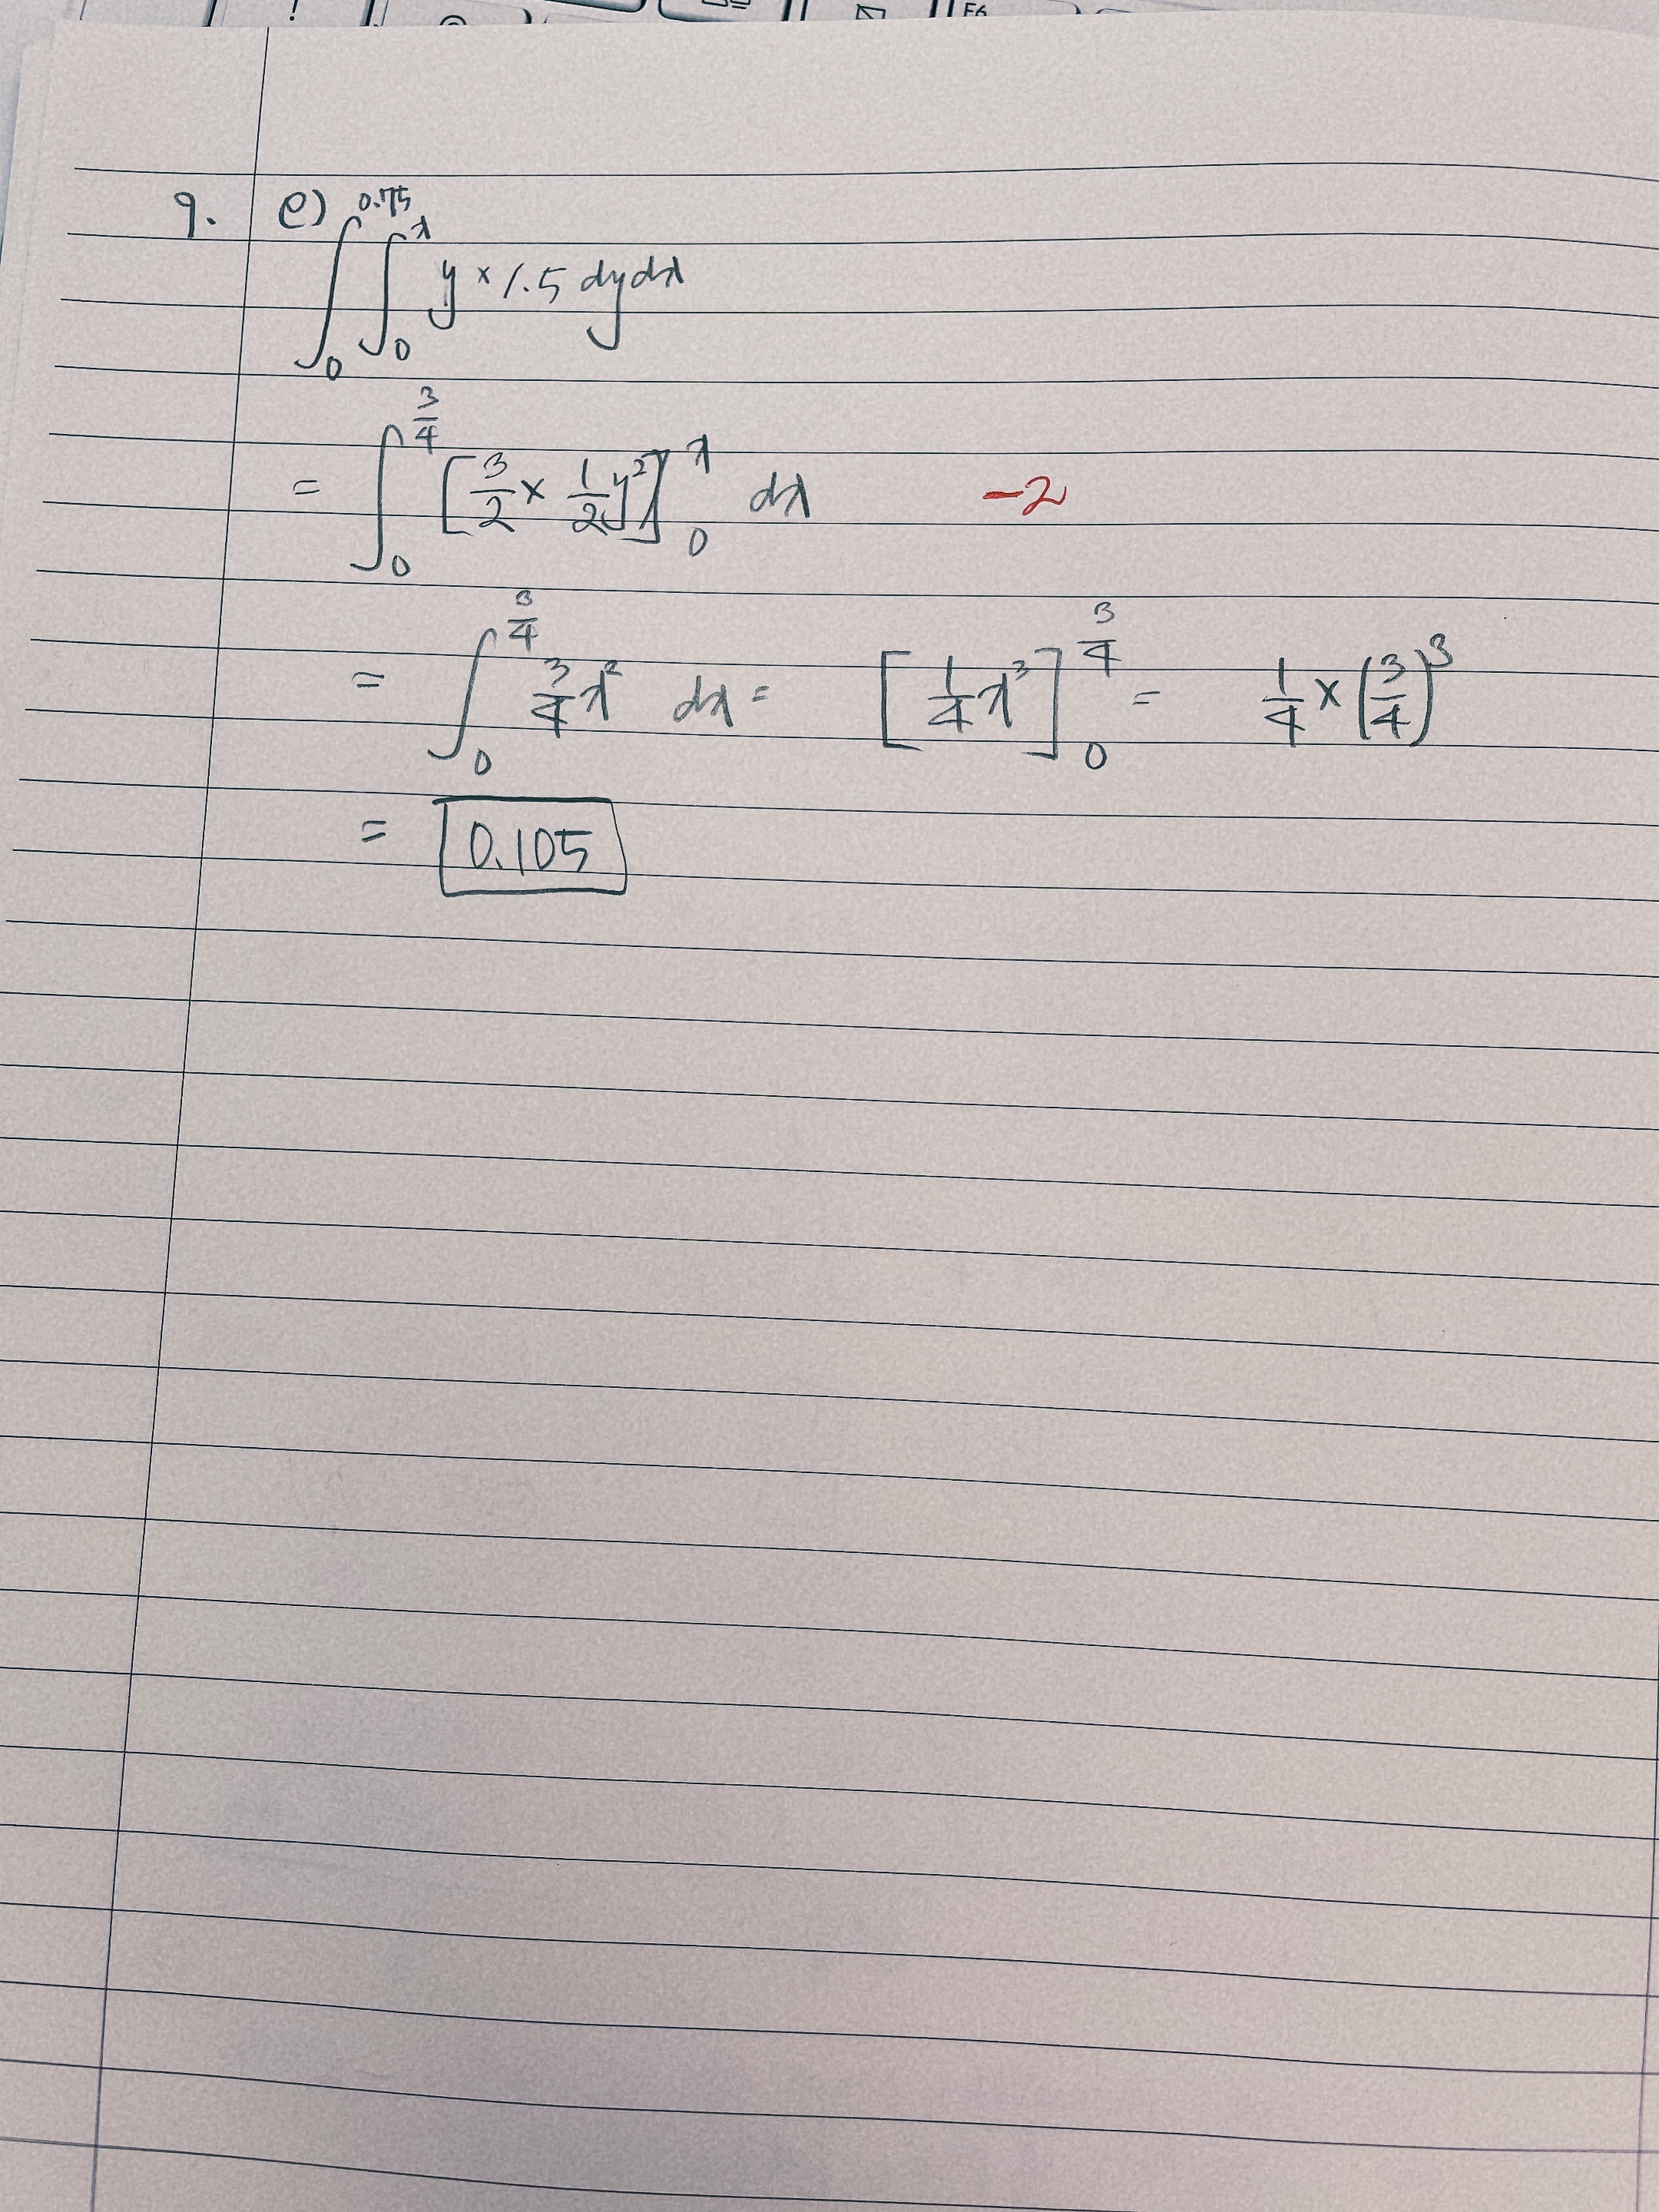 ! F6
9. e) ∫₀^0.75 ∫₀^x y × 1.5 dydx
= ∫₀^(3/4) [3/2 × 1/2 y²]₀^x dx -2
= ∫₀^(3/4) 3/4 x² dx = [1/4 x³]₀^(3/4) = 1/4 × (3/4)³
= 0.105